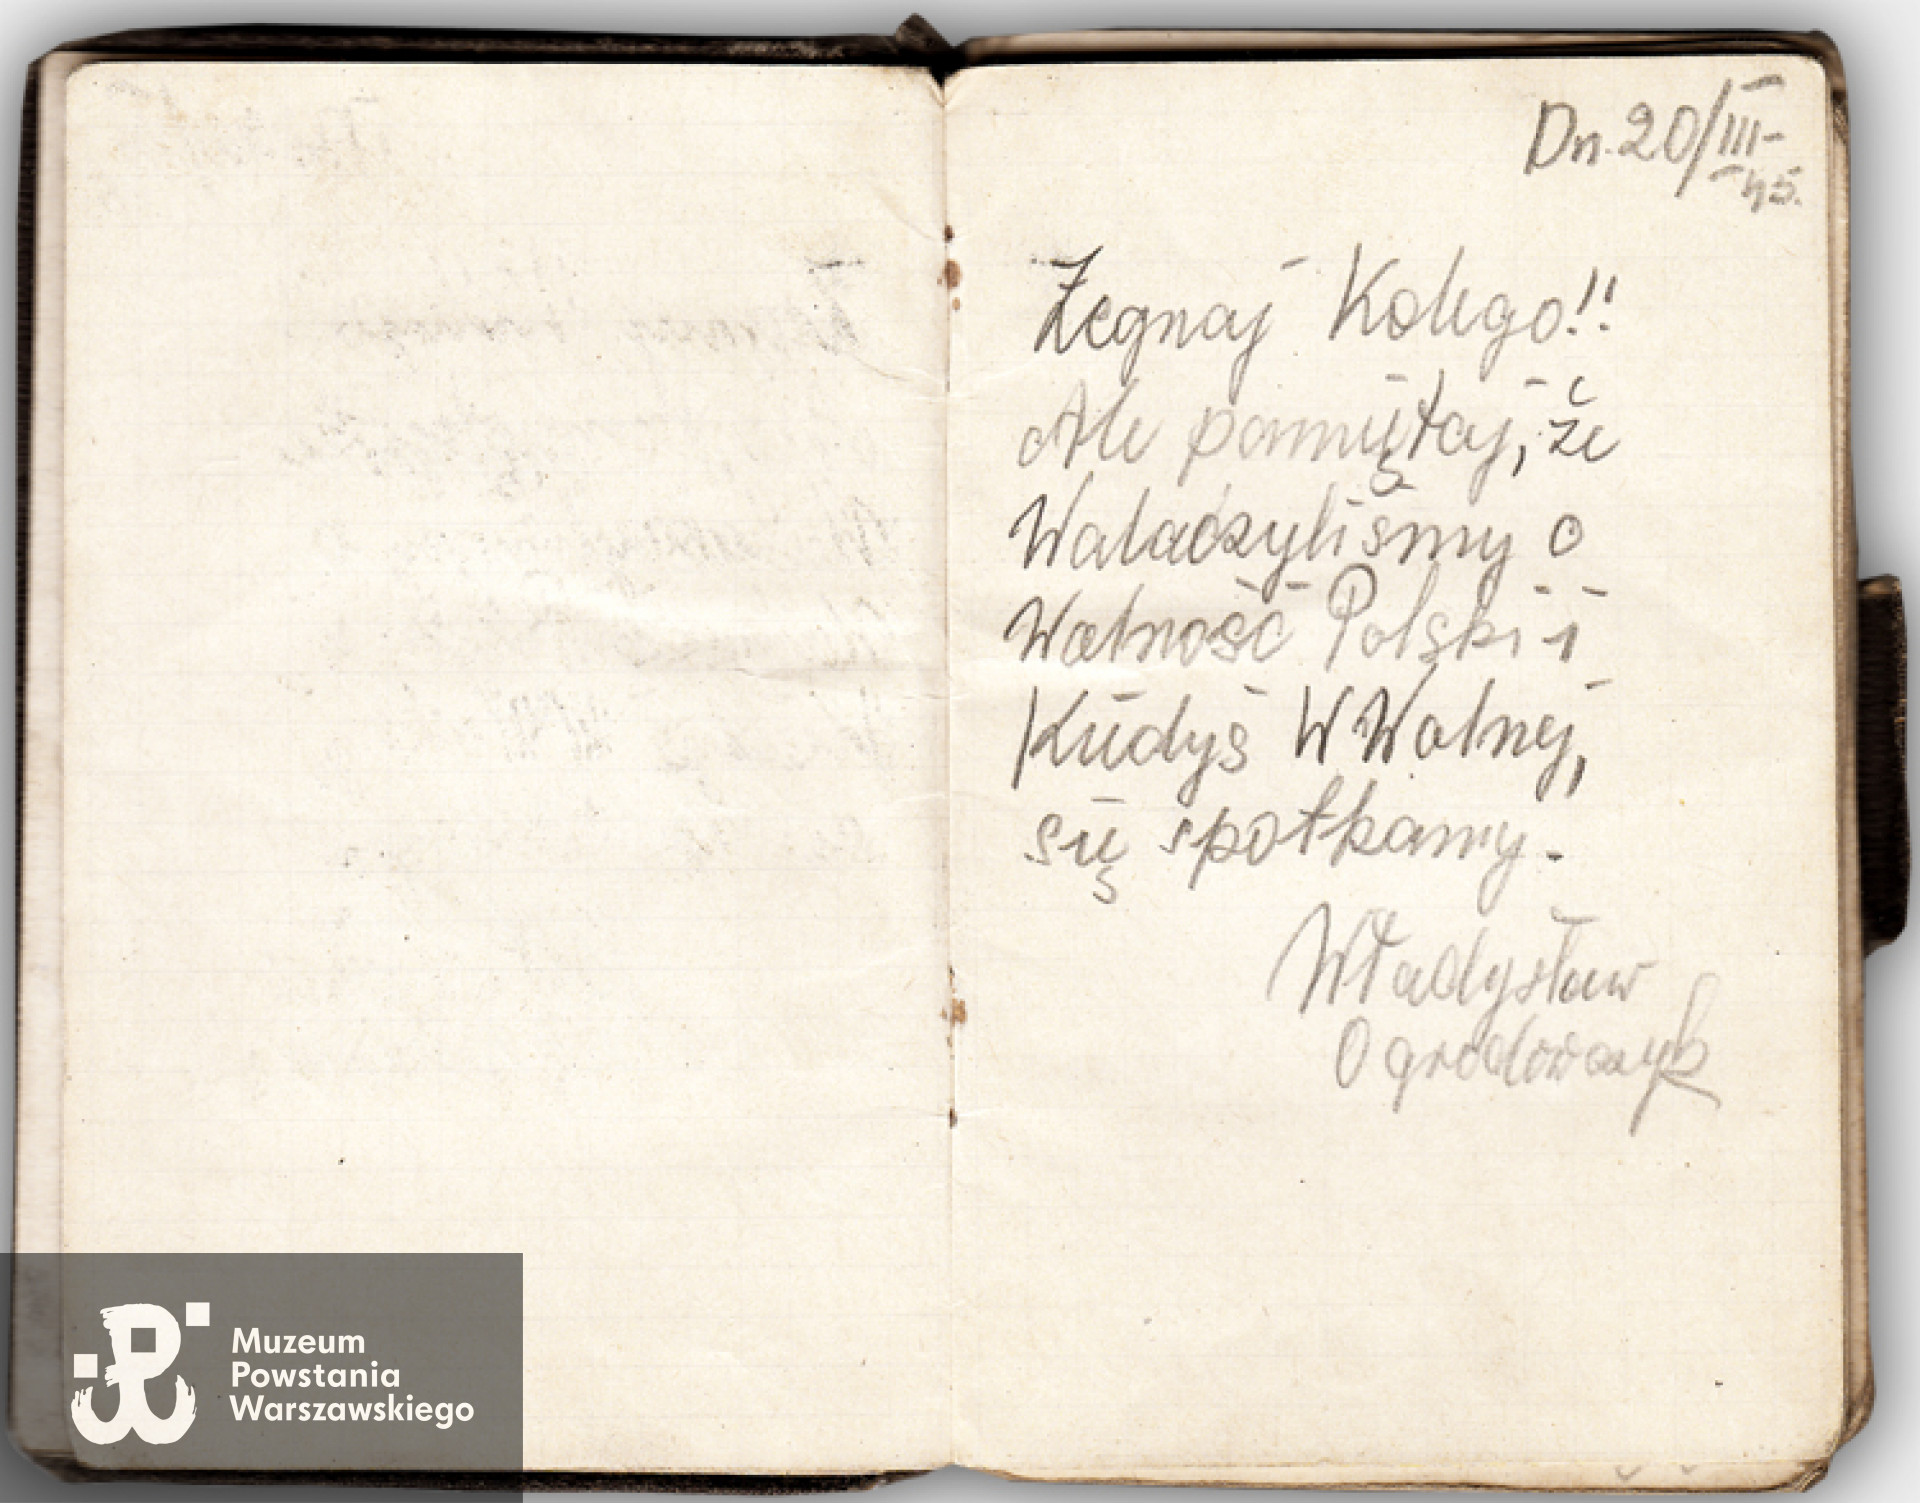 Dn. 20/III-
45.
Żegnaj Kolego!!
Ale pamiętaj, że
Walaczyliśmy o
Wolność Polski i
Kiedyś W Wolnej,
się spotkamy.
Władysław
Ogrodowczyk
Muzeum
Powstania
Warszawskiego